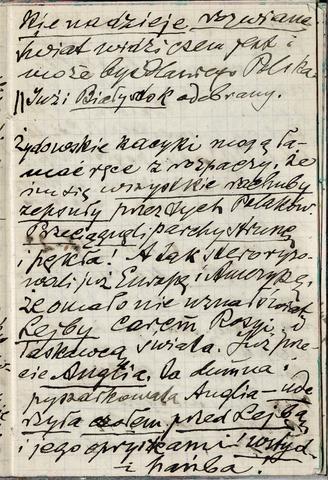 Ich nadzieje rozwiane.
Świat widzi czem jest i
może być dla niego Polska.
|| Już i Białystok odebrany.
Żydowskie kacyki mogą ła-
mać ręce z rozpaczy, że
im się wszystkie rachuby
zepsuły przez tych Polaków.
Przeciągnęli parchy strunę
i pękła! A tak steroryzo-
wali już Europę i Amerykę,
że omało nie uznał świat
Lejby carem Rosyi i
łaskawcą świata. Już prze-
cie Anglia, ta dumna i
pyszałkowata Anglia – ude-
rzyła czołem przed Lejbą
i jego opryszkami! wstyd
i hańba!